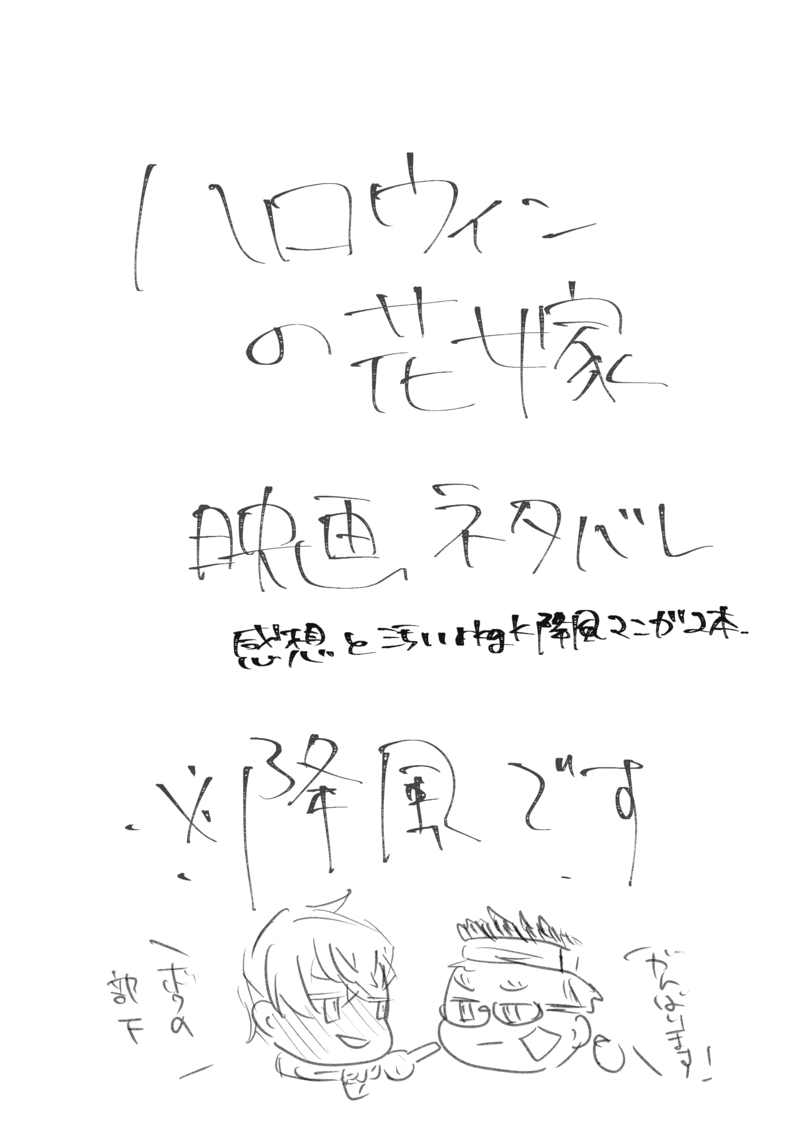 ハロウィン
の花嫁
映画 ネタバレ
感想と汚いけど降風マンガ2本
※降風です
ボクの
部下
がんばります!